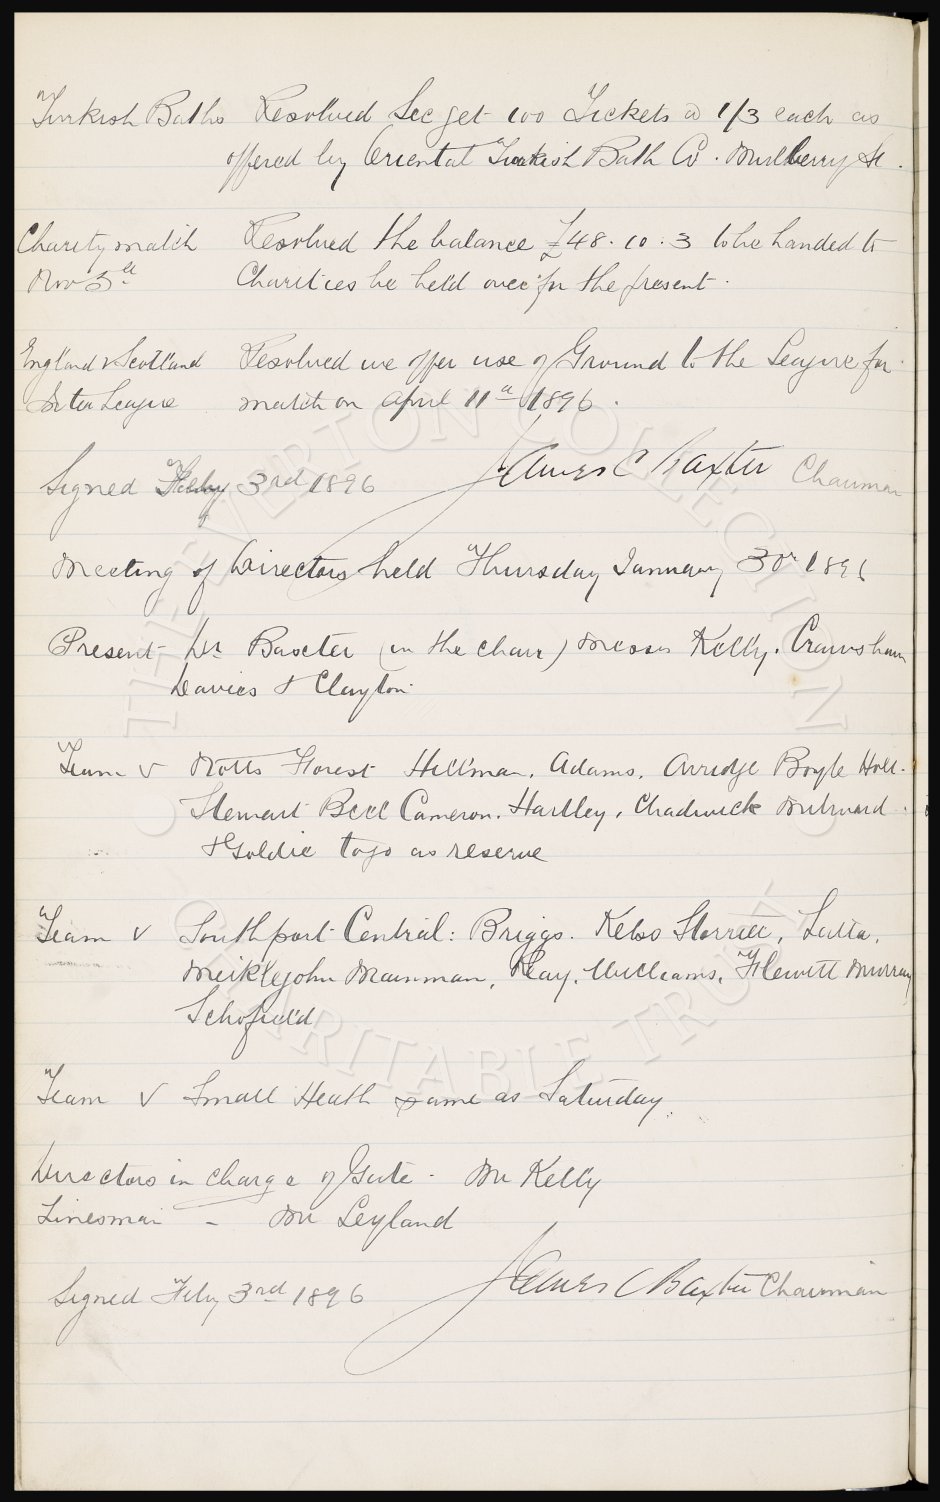 Turkish Baths Resolved Sec get 100 Tickets @ 1/3 each as
offered by Oriental Turkish Bath Co. Mulberry St.
Charity match Resolved the balance £48.10.3 to be handed to
Nov 5th Charities be held over for the present.
England v Scotland Resolved we offer use of Ground to the League for
Inter League match on April 11th 1896.
Signed Feby 3rd 1896 James C Baxter Chairman
Meeting of Directors held Thursday January 30th 1896
Present Dr Baxter (in the chair) Messrs Kelly. Crawshaw
Davies & Clayton
Team v Notts Forest Hillman, Adams, Arridge Boyle Holt.
Stewart Bell Cameron. Hartley, Chadwick Milward.
& Goldie to go as reserve
Team v Southport Central: Briggs. Kelso Storrier,
Meiklejohn Mainman, Reay, Williams, Flewitt Murray
Schofield
Team v Small Heath same as Saturday.
Directors in charge of Gate - Mr Kelly
Linesman - Mr Leyland
Signed Feby 3rd 1896 James C Baxter Chairman
THE EVERTON COLLECTION
CHARITABLE TRUST